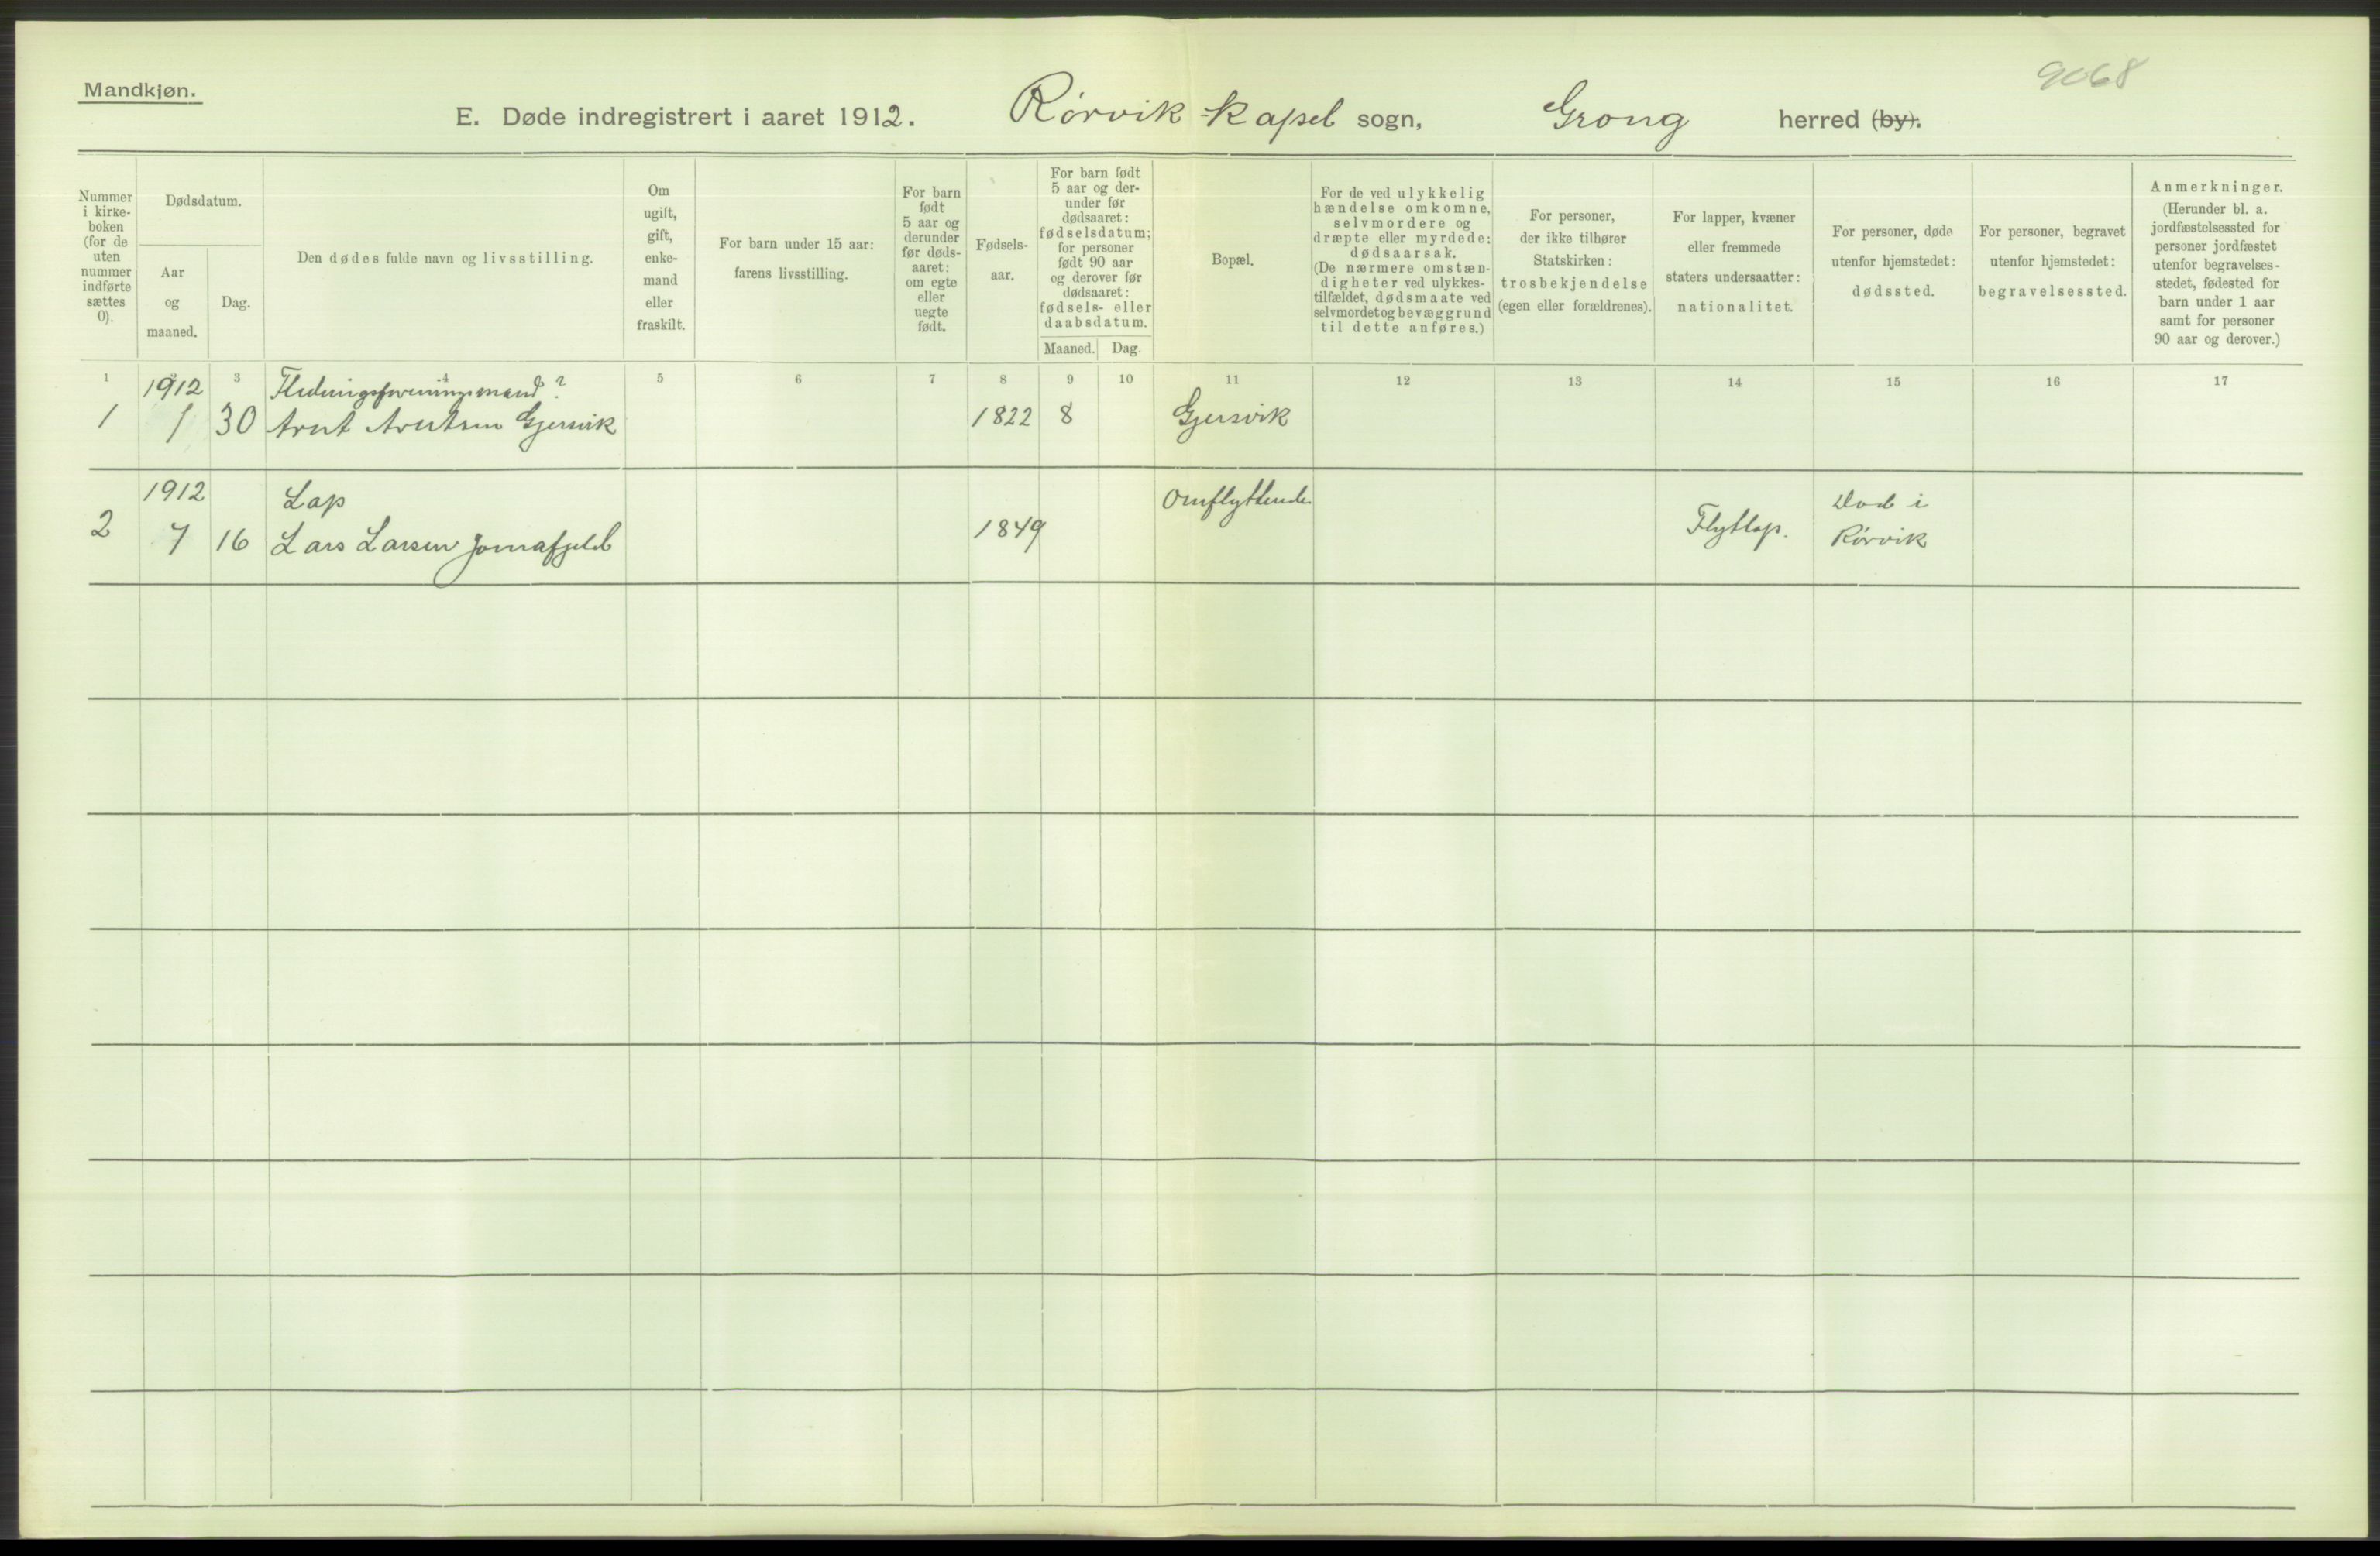 9068
Mandkjøn.
E. Døde indregistrert i aaret 1912. Rørvik-kapel sogn, Grong herred (by).
Nummer
i kirke-
boken
(for de
uten
nummer
indførte
sættes
0).
Dødsdatum.
Aar
og
maaned.
Dag.
Den dødes fulde navn og livsstilling.
Om
ugift,
gift,
enke-
mand
eller
fraskilt.
For barn under 15 aar:
farens livsstilling.
For barn
født
5 aar og
derunder
før døds-
aaret:
om egte
eller
uegte
født.
Fødsels-
aar.
For barn født
5 aar og der-
under før
dødsaaret:
fødselsdatum;
for personer
født 90 aar
og derover før
dødsaaret:
fødsels- eller
daabsdatum.
Maaned. Dag.
Bopæl.
For de ved ulykkelig
hændelse omkomne,
selvmordere og
dræpte eller myrdede:
dødsaarsak.
(De nærmere omstæn-
digheter ved ulykkes-
tilfældet, dødsmaate ved
selvmordet og bevæggrund
til dette anføres.)
For personer,
der ikke tilhører
Statskirken:
trosbekjendelse
(egen eller forældrenes).
For lapper, kvæner
eller fremmede
staters undersaatter:
nationalitet.
For personer, døde
utenfor hjemstedet:
dødssted.
For personer, begravet
utenfor hjemstedet:
begravelsessted.
Anmerkninger.
(Herunder bl. a.
jordfæstelsessted for
personer jordfæstet
utenfor begravelses-
stedet, fødested for
barn under 1 aar
samt for personer
90 aar og derover.)
1 2 3 4 5 6 7 8 9 10 11 12 13 14 15 16 17
1912 ?
1 1 30 Arnt Arntsen Gjersvik 1822 8 Gjersvik
1912 Lap Omflyttende Død i
2 7 16 Lars Larsen Jomafjeld 1849 Flytlap. Rørvik